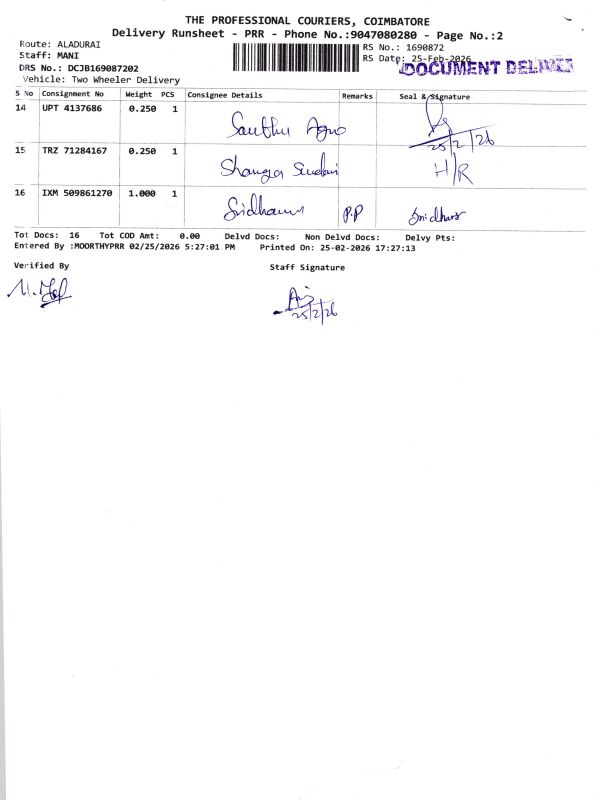 THE PROFESSIONAL COURIERS, COIMBATORE
Delivery Runsheet - PRR - Phone No.:9047080280 - Page No.:2
Route: ALADURAI
Staff: MANI
DRS No.: DCJB169087202
Vehicle: Two Wheeler Delivery
RS No.: 1690872
RS Date: 25-Feb-2026
DOCUMENT DELIVER
S No Consignment No Weight PCS Consignee Details Remarks Seal & Signature
14 UPT 4137686 0.250 1 Santhu Agro 25/2/26
15 TRZ 71284167 0.250 1 H/R
16 IXM 509861270 1.000 1 P.P Sridhar
Tot Docs: 16 Tot COD Amt: 0.00 Delvd Docs: Non Delvd Docs: Delvy Pts:
Entered By :MOORTHYPRR 02/25/2026 5:27:01 PM Printed On: 25-02-2026 17:27:13
Verified By Staff Signature
25/2/26